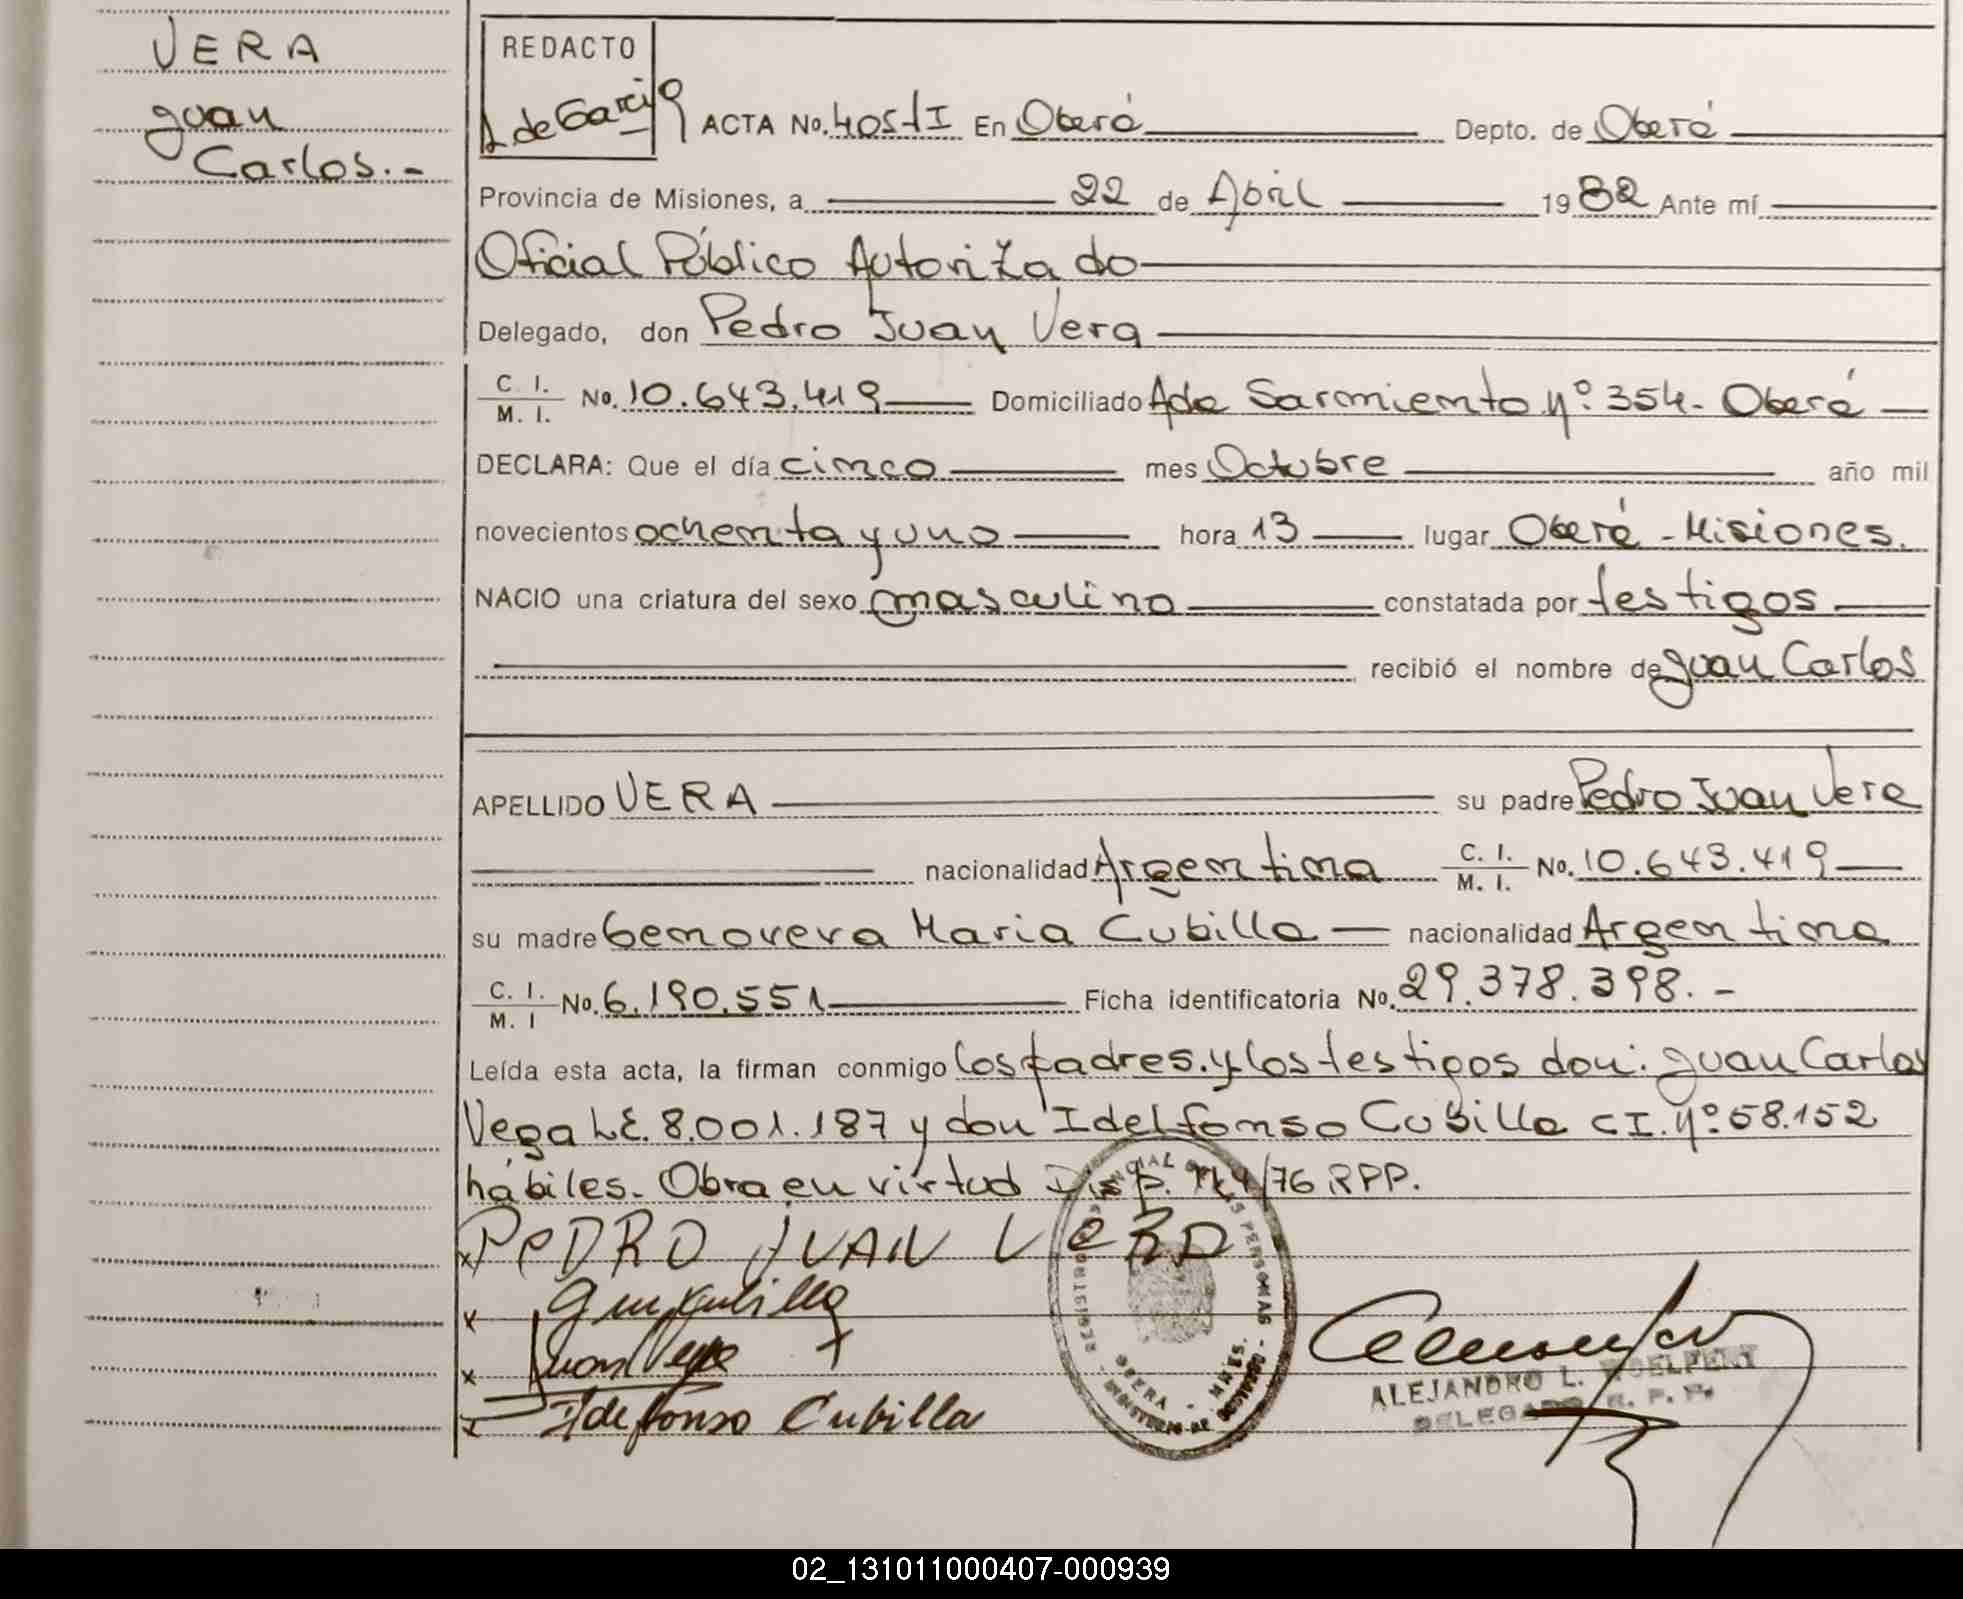 VERA
Juan
Carlos.-
REDACTO
L de Garcia
ACTA No. 405-I En Oberá Depto. de Oberá
Provincia de Misiones, a 22 de Abril 1982 Ante mí
Oficial Público Autorizado
Delegado, don Pedro Juan Vera
C. I. / M. I. No. 10.643.419 Domiciliado Ada Sarmiento nº 354- Oberá
DECLARA: Que el día cinco mes Octubre año mil
novecientos ochenta y uno hora 13 lugar Oberá - Misiones.
NACIO una criatura del sexo masculino constatada por testigos
recibió el nombre de Juan Carlos
APELLIDO VERA su padre Pedro Juan Vera
nacionalidad Argentina C. I. / M. I. No. 10.643.419
su madre Genoveva Maria Cubilla nacionalidad Argentina
C. I. / M. I No. 6.190.551 Ficha identificatoria No. 29.378.398.-
Leída esta acta, la firman conmigo los padres. y los testigos don: Juan Carlos
Vega L.E. 8.001.187 y don Idelfonso Cubilla C I. nº 58.152
hábiles. Obra en virtud Disp. /76 RPP.
x PEDRO JUAN VERA
x Cubilla
x Juan Vega
x Ildefonso Cubilla
OBERA - MNES.
ALEJANDRO L.
DELEGADO R. P. P.
02_131011000407-000939